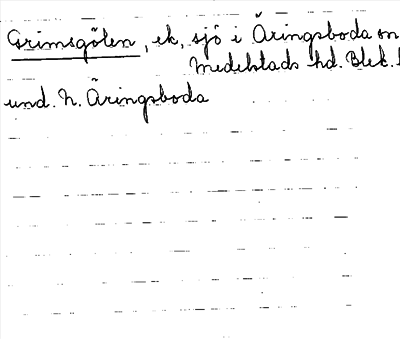 Grimsgölen, ek, sjö i Äringsboda sn
Medelstads hd. Blek. l
und. N. Äringsboda